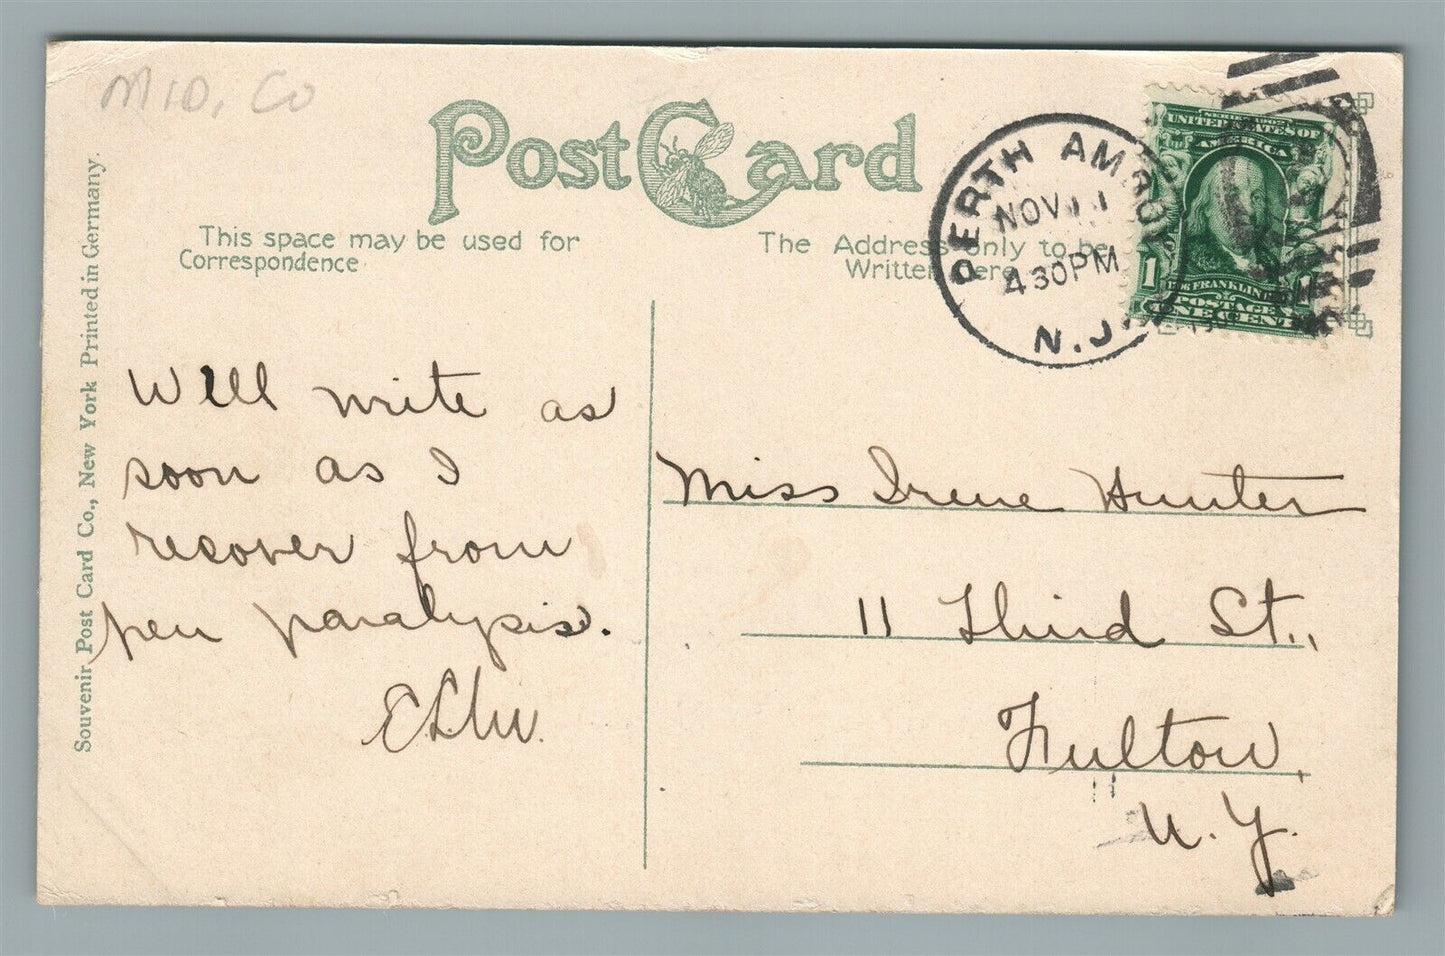 MID, Co
Post Card
This space may be used for
Correspondence
The Address only to be
Written Here
PERTH AMBOY
NOV 11
430PM
N.J.
UNITED STATES OF
AMERICA
1
FRANKLIN
POSTAGE
ONE CENT
Will write as
soon as I
recover from
pen paralysis.
Miss Irene Hunter
11 Third St.,
Fulton,
N.Y.
Souvenir Post Card Co., New York Printed in Germany.